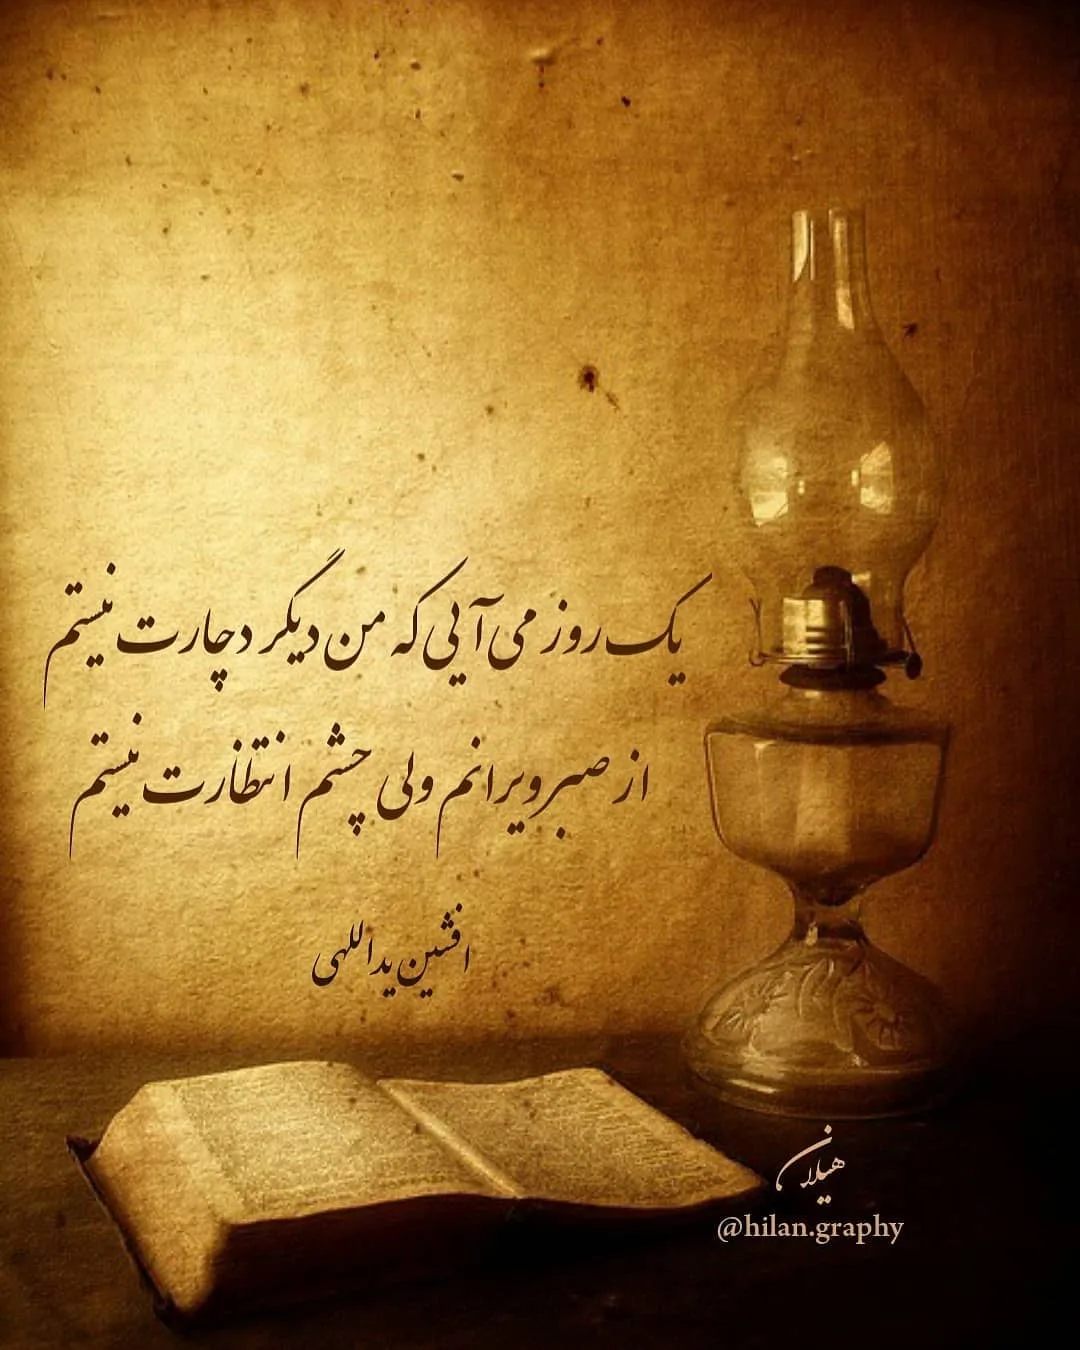 یک روز می آیی که من دیگر دچارت نیستم
از صبر ویرانم ولی چشم انتظارت نیستم
افشین یداللهی
هیلان
@hilan.graphy